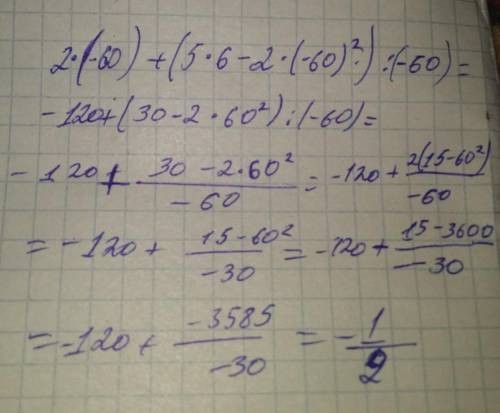 2·(-60) + (5·6 - 2·(-60)²) : (-60) =
-120 + (30 - 2·60²) : (-60) =
-120 + \frac{30 - 2·60²}{-60} = -120 + \frac{2(15 - 60²)}{-60}
= -120 + \frac{15 - 60²}{-30} = -120 + \frac{15 - 3600}{-30}
= -120 + \frac{-3585}{-30} = -\frac{1}{2}